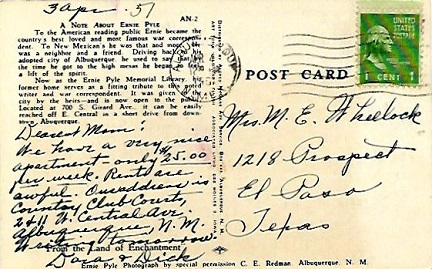 3 Apr. 51
A NOTE ABOUT ERNIE PYLE
AN-2
To the American reading public Ernie became the
country's best loved and most famous war correspon-
dent. To New Mexican's he was that and more. He
was a neighbor and a friend. Driving back to his
adopted city of Albuquerque, he used to say that by
the time he got to the high mesas he began to
a lift of the spirit.
Now as the Ernie Pyle Memorial Library, his
former home serves as a fitting tribute to the noted
writer and war correspondent. It was given to the
city by the heirs—and is now open to the public.
Located at 700 S. Girard Ave. it can be easily
reached off E. Central in a short drive from down-
town, Albuquerque.
Dearest Mom:
We have a very nice
apartment only $25.00
per week. Rents are
awful. Our address is
Country Club Courts,
2411 W. Central Ave.
Albuquerque, N. M.
Write
From the Land of Enchantment
Dora & Dick
POST CARD
UNITED
STATES
POSTAGE
1 CENT 1
Mrs. M. E. Wheelock
1218 Prospect
El Paso
Texas
Ernie Pyle Photograph by special permission C. E. Redman, Albuquerque, N. M.